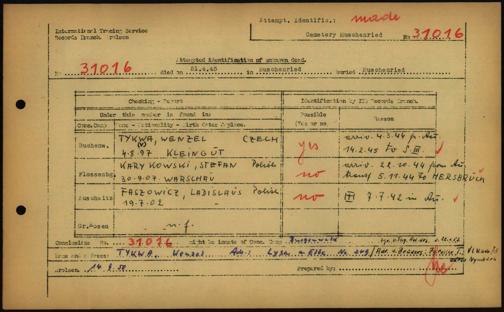 International Tracing Service
Records Branch
Attempt. Identific.: made
Cemetery Muschenried No 31016
Attempted identification of unknown dead.
No 31016 died on 21.4.45 in Muschenried buried Muschenried
Checking - Report
Identification by ITS Records Branch.
Under this number is found in:
Possible
Yes or no.
Reason
Conc.Camp Nationality - Birth
Buchenw. TYKWA, WENZEL CZECH
4.8.97 KLEINGÜT
yes
arriv. 4.3.44 fr. Au.
14.2.45 to S III.
Flossenbg. KARYKOWSKI, STEFAN Polish
30.9.07 WARSCHAU
no
arriv. 22.10.44 from Au.
transf. 5.11.44 to HERSBRUCK
Auschwitz FASZOWICZ, LADISLAUS Polish
19.7.02
no
7.7.42 in Au.
Gr.Rosen n.f.
Conclusion No. 31016 might be inmate of Conc. Camp Buchenwald
TYKWA, Wenzel
Arolsen, 14.8.50
Prepared by: